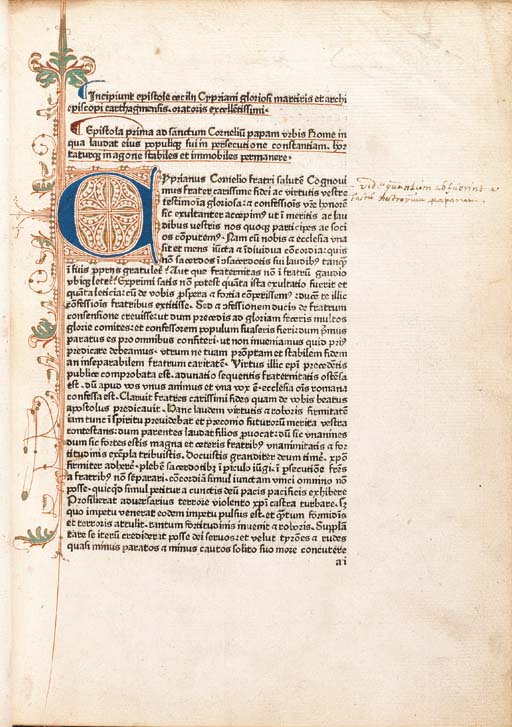 Incipiunt epistole cecilii Cypriani gloriosi martiris et archi
episcopi carthaginensis. oratoris excellētissimi.
Epistola prima ad sanctum Corneliū papam vrbis Rome in
qua laudat eius populiq; sui in persecutione constantiam. hor
taturq; in agone stabiles et immobiles permanere.
CYprianus Cornelio fratri salutē Cognoui
mus frater carissime fidei ac virtutis vestre
testimōia gloriosa: ⁊ confessiōis vr̄e honorē
sic exultanter accepim⁹ ut ī meritis ac lau
dibus vestris nos quoq; participes ac soci
os cōputem⁹. Nam cū nobis ⁊ ecclesia vna
sit et mens iūcta ⁊ īdiuidua cōcordia: quis
nō sacerdos ī ɔsacerdotis sui laudib⁹ tanq̄
ī suis p̱prijs gratulet᷑? Aut que fraternitas nō ī fratrū gaudio
vbiq; letet᷑? Exprimi satis nō potest quāta ista exultatio fuerit et
quāta leticia: cū de vobis p̱spera ⁊ fortia cōperissem⁹: ducē te illic
ɔfessiōis fratribus extitisse. Sed ⁊ ɔfessionem ducis de fratrum
consensione creuisse: ut dum precedis ad gloriam feceris multos
glorie comites: et confessorem populum suaseris fieri: dum p̱mus
paratus es pro omnibus confiteri. ut non inueniamus quid pri⁹
predicare debeamus. vtrum ne tuam prōptam et stabilem fidem
an inseparabilem fratrum caritatē. Virtus illic ep̄i precedētis
publice comprobata est. adunatio sequentis fraternitatis ostēsa
est. dū apud vos vnus animus et vna vox ē. ecclesia oīs romana
confessa est. Claruit fratres carissimi fides quam de vobis beatus
apostolus predicauit. Hanc laudem virtutis ⁊ roboris firmitatē
iam tunc ī spiritu preuidebat et preconio futurorū merita vestra
contestans: dum parentes laudat filios prouocat: dū sic vnanimes
dum sic fortes estis magna et ceteris fratrib⁹ vnanimitatis ⁊ for
titudinis exēpla tribuistis. Docuistis granditer deum timē. xp̄o
firmiter adherē. plebē sacerdotib⁹ ī piculo iūgi. ī psecutiōe fr̄es
a fratrib⁹ nō separari. cōcordiā simul iunctam vinci omnino nō
posse. quicq̄d simul petitur a cunctis deū pacis pacificis exhibere
Prosilierat aduersarius terrore violento xp̄i castra turbare. sꝫ
quo impetu venerat eodem impetu pulsus est. et q̄tum formidīs
et terroris attulit. tantum fortitudinis inuenit ⁊ roboris. Supplā
tare se iterū crediderat posse dei seruos: et velut tyrōes ⁊ rudes
quasi minus paratos ⁊ minus cautos solito suo more concutere
a i